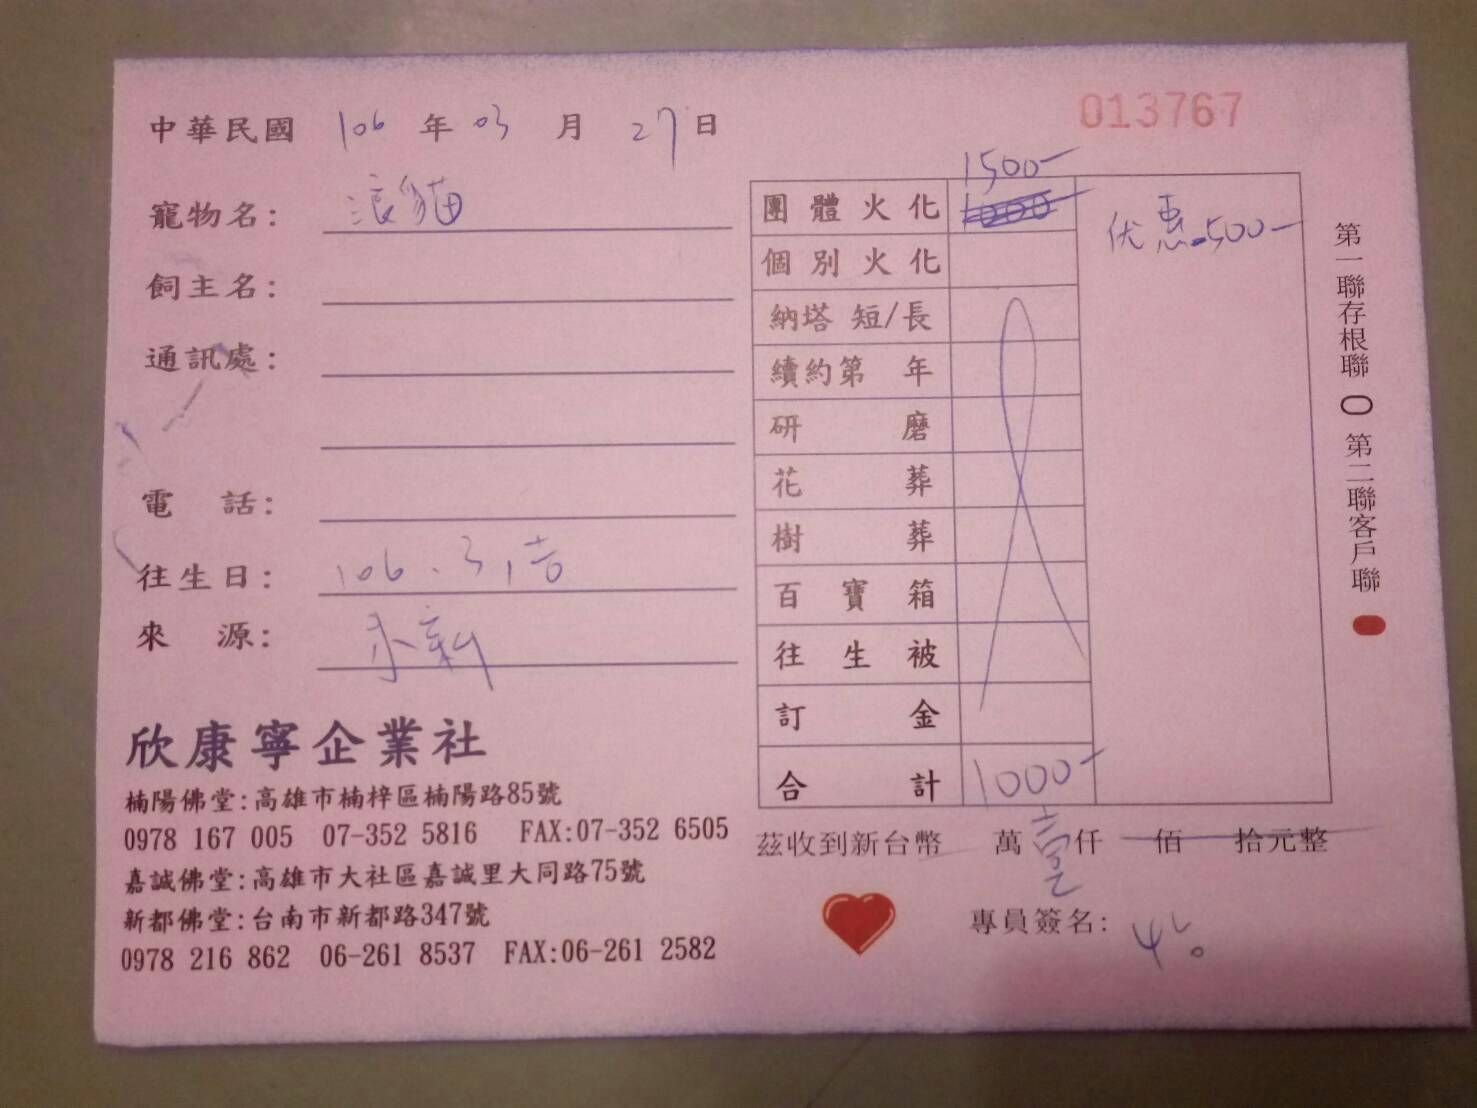 中華民國 106 年 03 月 27 日
013767
寵物名: 浪貓
飼主名:
通訊處:
電 話:
往生日: 106.3,
來 源:
欣康寧企業社
楠陽佛堂:高雄市楠梓區楠陽路85號
0978 167 005 07-352 5816 FAX:07-352 6505
嘉誠佛堂:高雄市大社區嘉誠里大同路75號
新都佛堂:台南市新都路347號
0978 216 862 06-261 8537 FAX:06-261 2582
1500-
團體火化 1000
优惠-500-
個別火化
納塔 短/長
續約第 年
研 磨
花 葬
樹 葬
百 寶 箱
往 生 被
訂 金
合 計 1000-
茲收到新台幣 萬 壹 仟 佰 拾元整
專員簽名:
第一聯存根聯 第二聯客戶聯